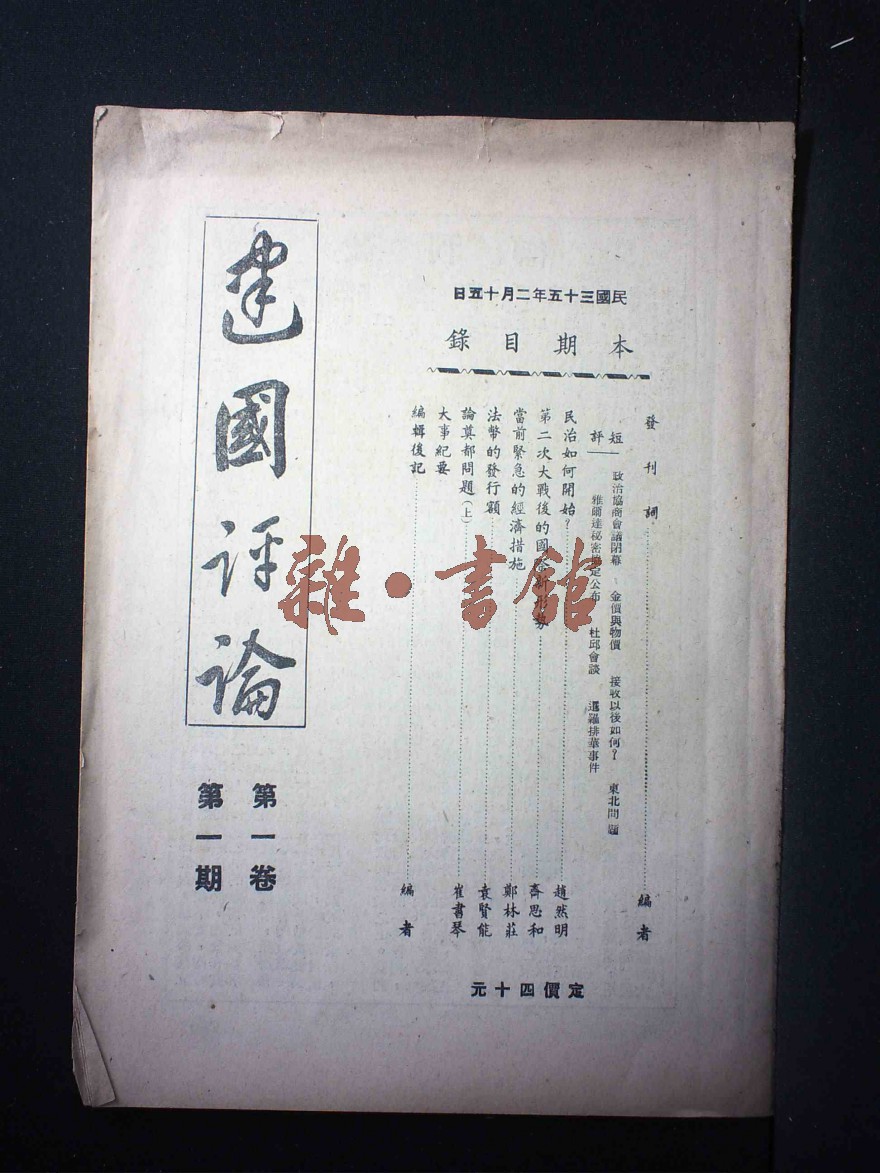 民國三十五年二月十五日
本期目錄
發刊詞……編者
短評
政治協商會議閉幕 金價與物價 接收以後如何？ 東北問題
雅爾達秘密協定公布 杜邱會談 暹羅排華事件
民治如何開始？……趙然明
第二次大戰後的國際新形勢……齊思和
當前緊急的經濟措施……鄭林莊
法幣的發行額……袁賢能
論奠都問題（上）……崔書琴
大事紀要
編輯後記……編者
定價四十元
建國评论
第一卷
第一期
雜·書館